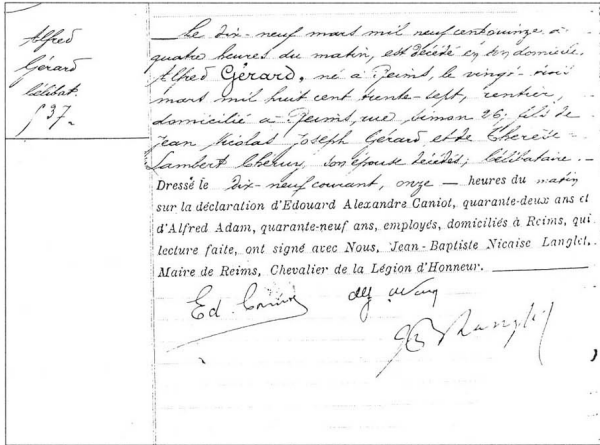 Alfred
Gérard
Célibat.
Le dix-neuf mars mil neuf cent onze à
quatre heures du matin, est décédé en son domicile
Alfred Gérard, né à Reims, le vingt-trois
mars mil huit cent trente-sept, rentier,
domicilié à Reims, rue Simon 26; fils de
Jean Nicolas Joseph Gérard et de Thérèse
Lambert Cheruy, son épouse décédés; Célibataire.
Dressé le dix-neuf courant, onze — heures du matin
sur la déclaration d'Edouard Alexandre Caniot, quarante-deux ans et
d'Alfred Adam, quarante-neuf ans, employés, domiciliés à Reims, qui
lecture faite, ont signé avec Nous, Jean-Baptiste Nicaise Langlet,
Maire de Reims, Chevalier de la Légion d'Honneur.
Ed. Caniot
Langlet